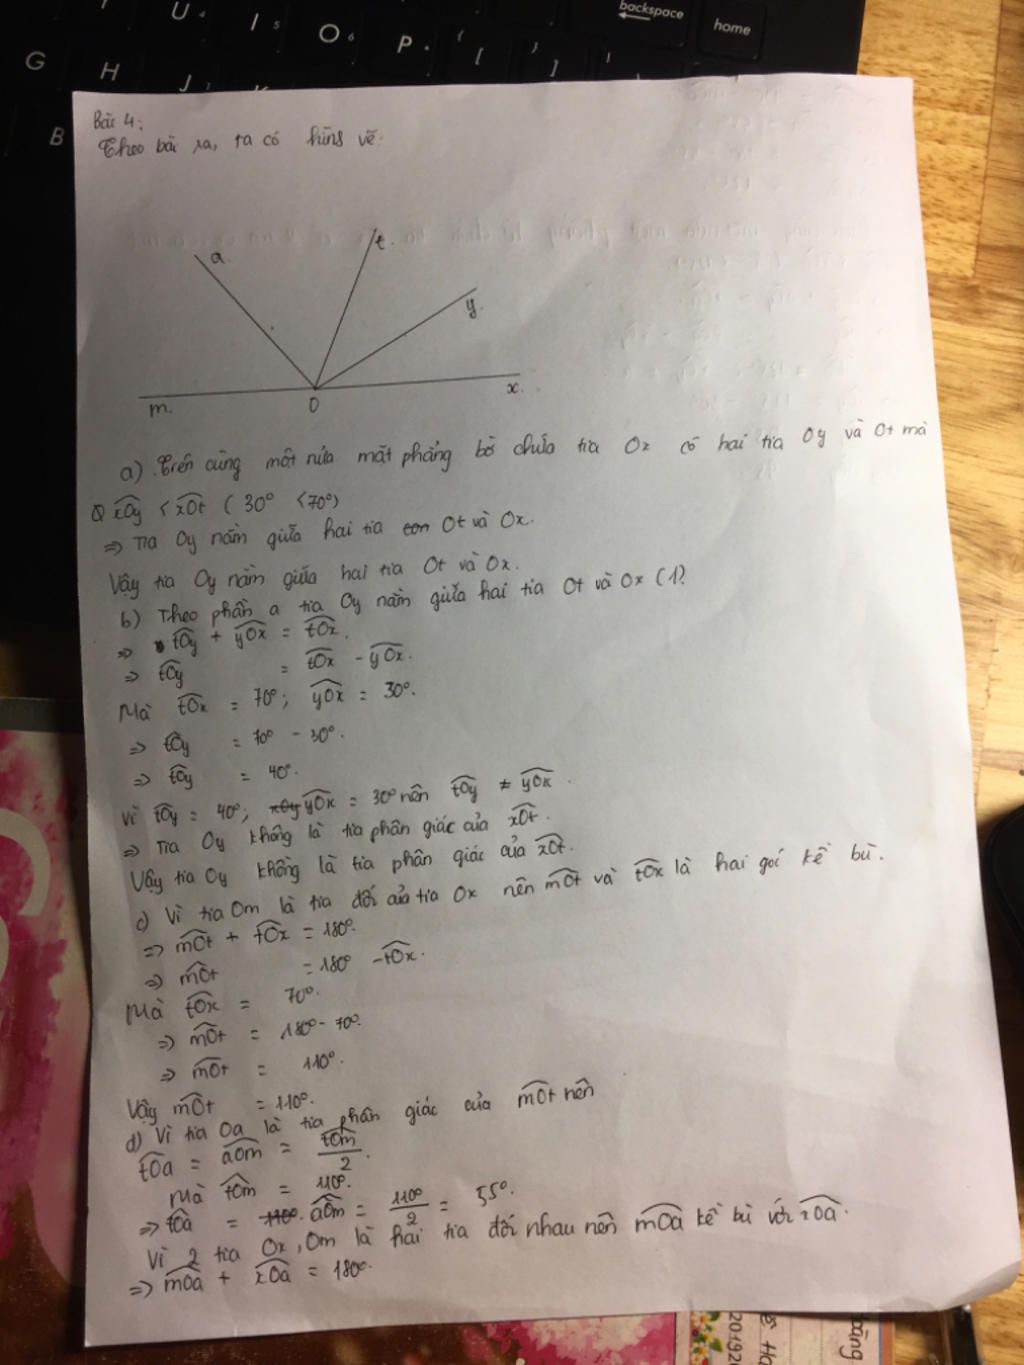 U 4
I 5
O 6
P
[
]
backspace
home
G
H
J
B
Bài 4:
Theo bài ra, ta có hình vẽ:
a
t
y
m
O
x
a) Trên cùng một nửa mặt phẳng bờ chứa tia Ox có hai tia Oy và Ot mà
xOy < xOt (30° < 70°)
=> Tia Oy nằm giữa hai tia Ot và Ox.
Vậy tia Oy nằm giữa hai tia Ot và Ox.
b) Theo phần a tia Oy nằm giữa hai tia Ot và Ox (1)
=> tOy + yOx = tOx.
=> tOy = tOx - yOx.
Mà tOx = 70°; yOx = 30°.
=> tOy = 70° - 30°.
=> tOy = 40°.
Vì tOy = 40°; yOx = 30° nên tOy ≠ yOx.
=> Tia Oy không là tia phân giác của xOt.
Vậy tia Oy không là tia phân giác của xOt.
c) Vì tia Om là tia đối của tia Ox nên mOt và tOx là hai góc kề bù.
=> mOt + tOx = 180°.
=> mOt = 180° - tOx.
Mà tOx = 70°.
=> mOt = 180° - 70°.
=> mOt = 110°.
Vậy mOt = 110°.
d) Vì tia Oa là tia phân giác của mOt nên
tOa = aOm = tOm/2.
Mà tOm = 110°.
=> tOa = aOm = 110°/2 = 55°.
Vì 2 tia Ox, Om là hai tia đối nhau nên mOa kề bù với xOa.
=> mOa + xOa = 180°.
201926